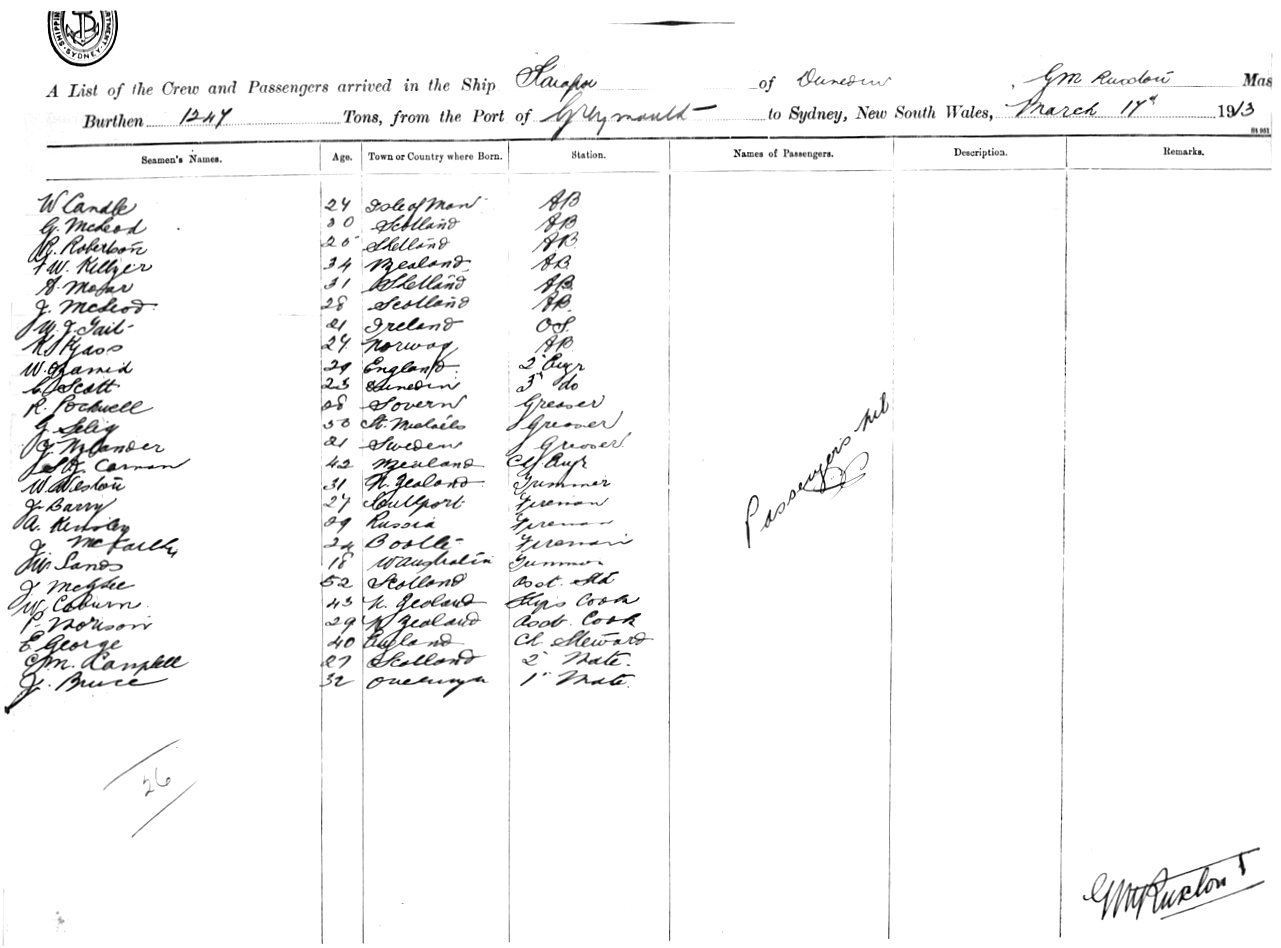 SHIPPIN TMENT
SYDNEY
A List of the Crew and Passengers arrived in the Ship of Dunedin, GM Ruxton Mas
Burthen 1247 Tons, from the Port of Greymouth to Sydney, New South Wales, March 17th 1913
Seamen's Names. Age. Town or Country where Born. Station. Names of Passengers. Description. Remarks.
W Candle 24 Isle of Man AB
G. McLeod 30 Scotland AB
R. Robertson Shetland AB
W. 34 N Zealand AB
A. 31 Shetland AB
J. McLeod 28 Scotland AB
W. J. Tait 21 Ireland OS
24 Norway AB
W. England 2 Engr
C. Scott 23 Dunedin 3rd do
R. Pockwell 28 Greaser
G. Selig 50 St. Michaels Greaser
J. Nylander 21 Sweden Greaser
Carnan 42 N Zealand Ch Engr
W. Weston 31 N. Zealand Trimmer
J. Barry 27 Southport Fireman
A. Russia Fireman
J. 24 Bootle Fireman
Sands 18 W Australia Trimmer
J. McGhee 52 Scotland Asst. Std
W. Coburn 43 N. Zealand Ships Cook
P. Morison 29 N Zealand Asst. Cook
E George 40 England Ch Steward
C. M. Campbell 27 Scotland 2 Mate.
J. Bruce 32 1st Mate.
Passengers nil
26
GM Ruxton